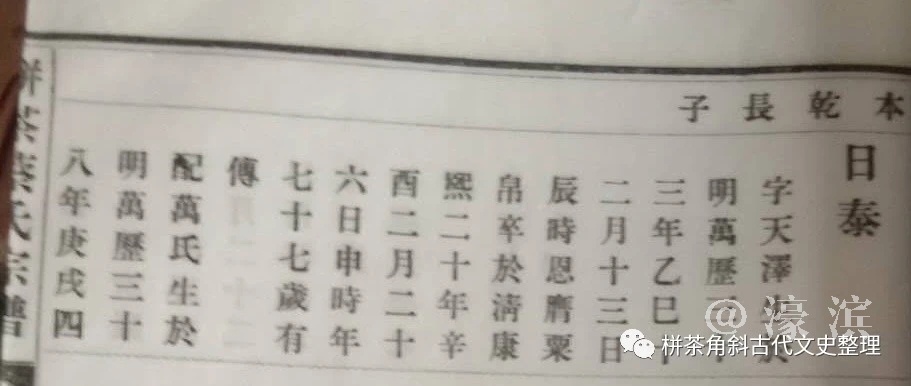 本乾長子
日泰
字天澤於
明萬歷
三年乙巳十
二月十三日
辰時恩膺粟
帛卒於清康
熙二十年辛
酉二月二十
六日申時年
七十七歲有
傳
配萬氏生於
明萬歷三十
八年庚戌四
栟茶蔡氏宗譜
@濠滨
栟茶角斜古代文史整理